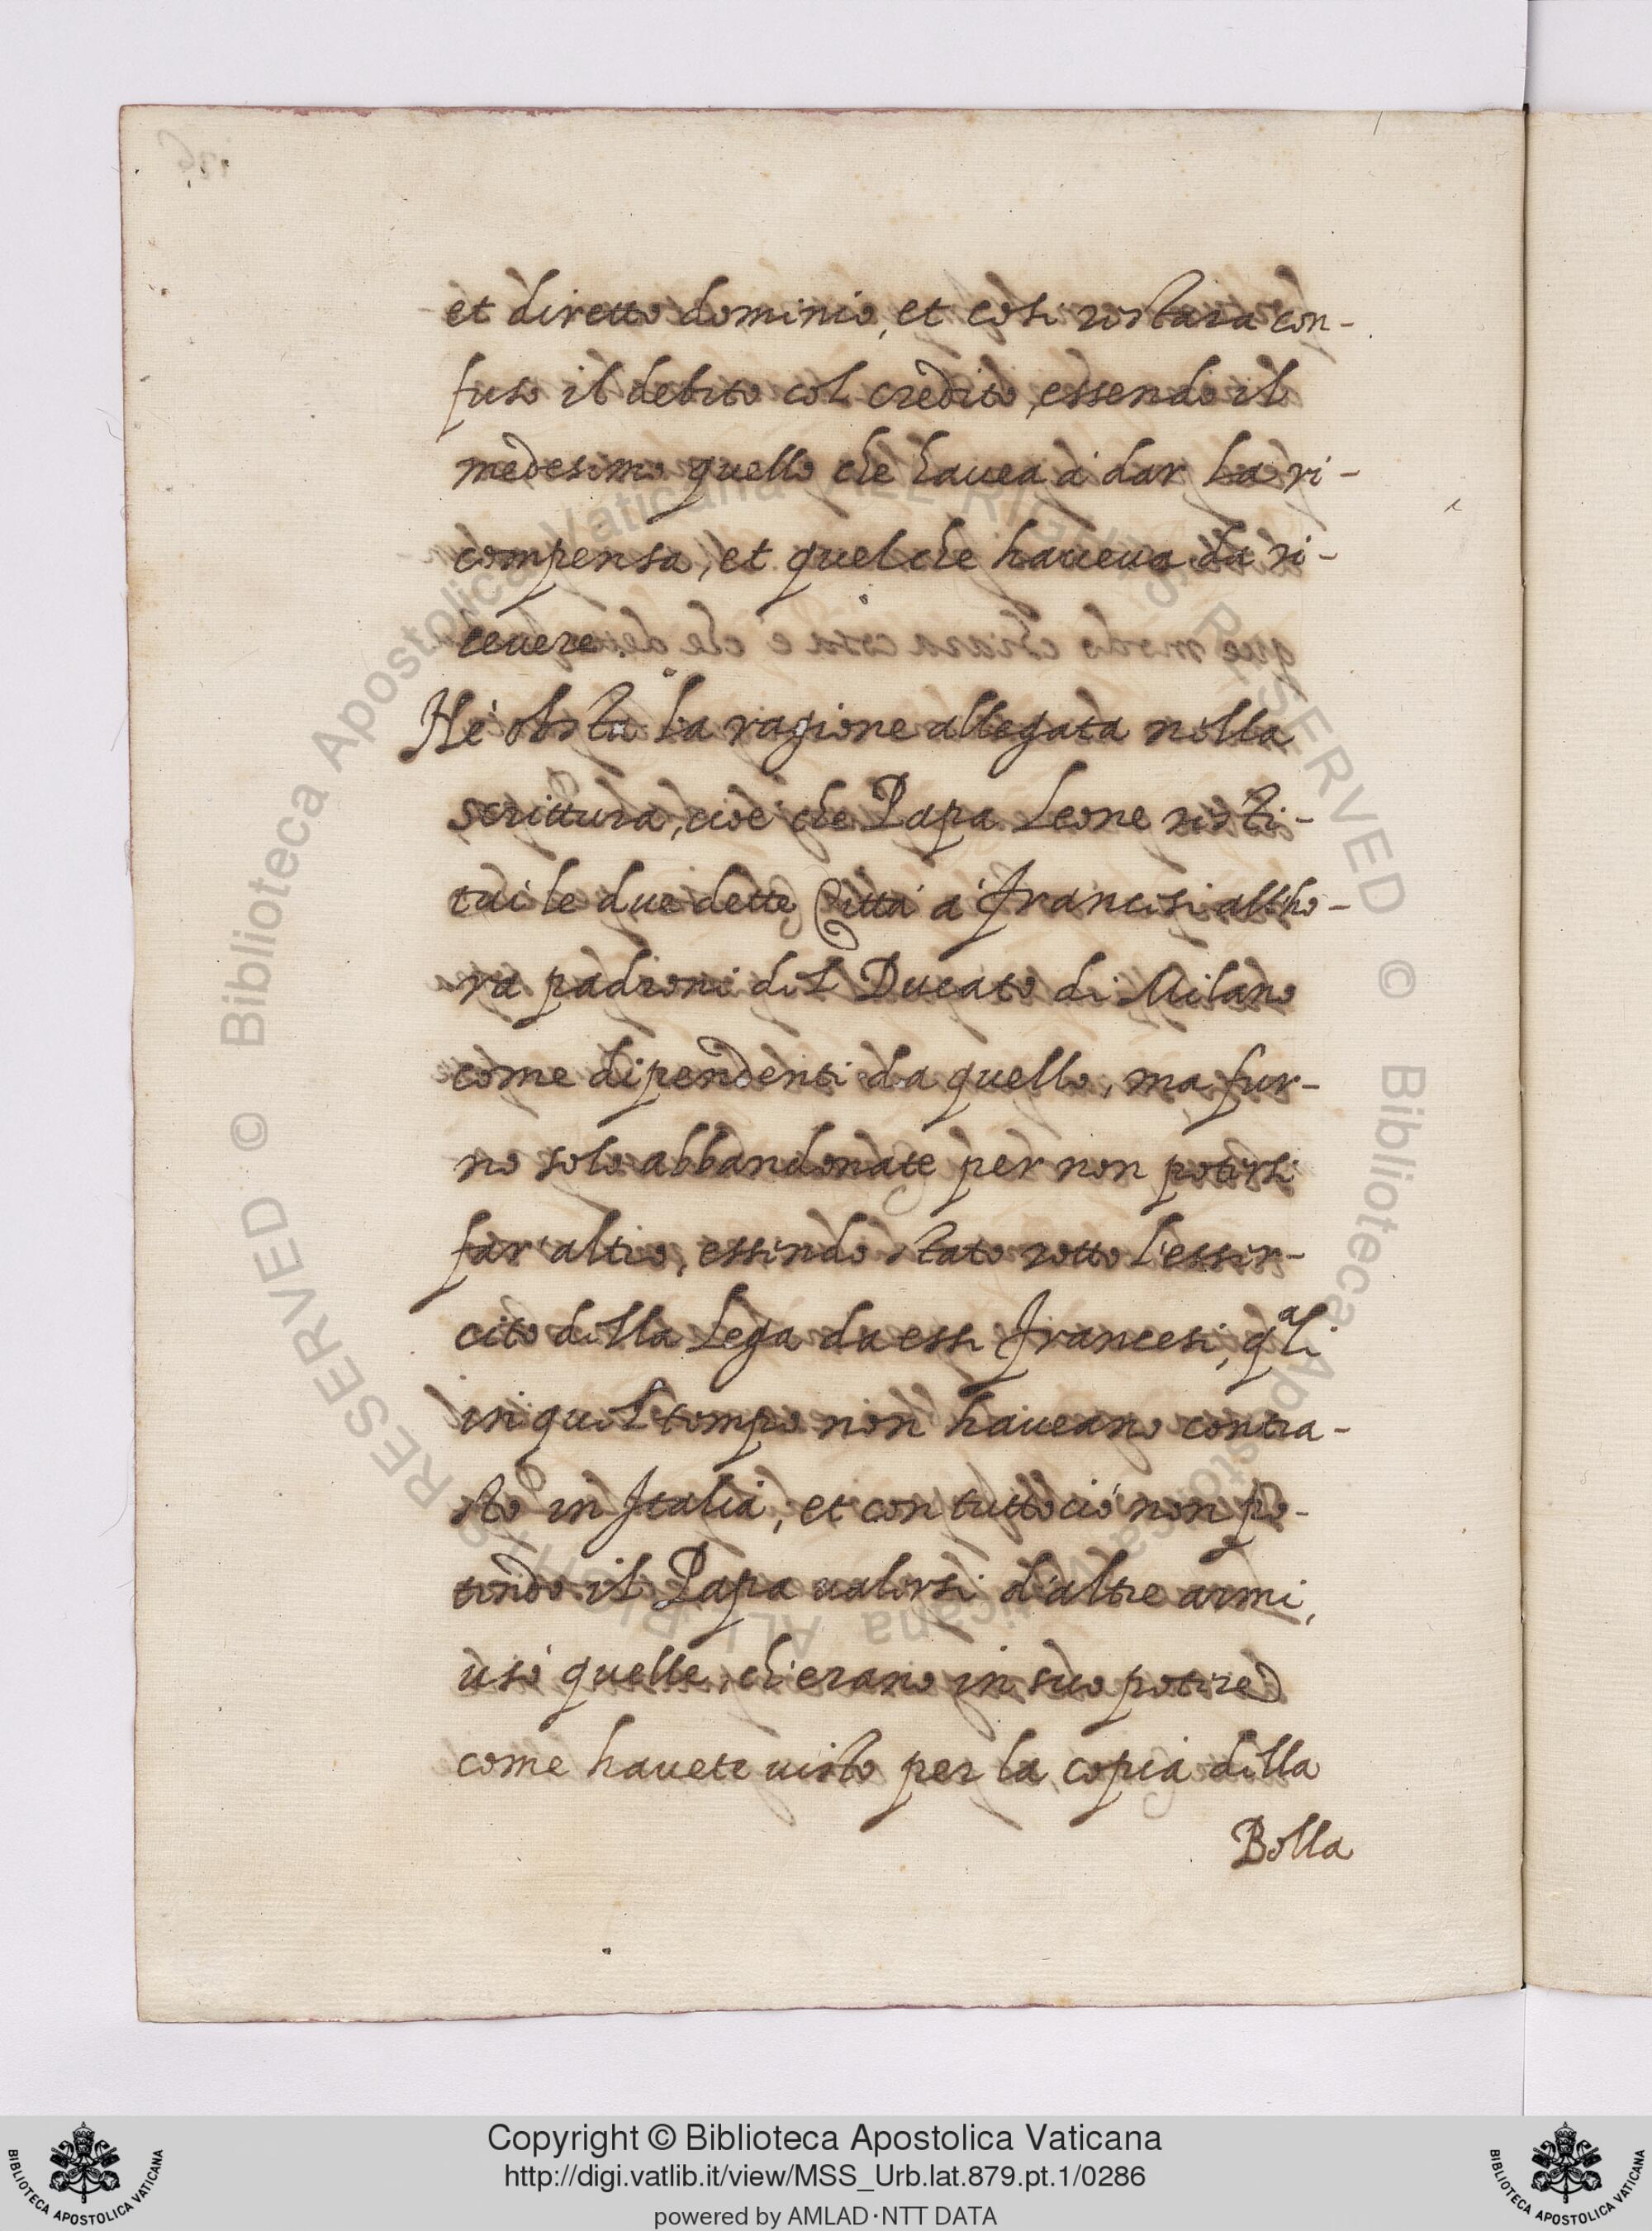 et diretto dominio, et cosi restara con-
fuso il debito col credito, essendo il
medesimo quello che havea à dar la ri-
compensa, et quel che haveva da ri-
cevere.
Nè obsta la ragione allegata nella
scrittura, cioè che Papa Leone resti-
tuì le due dette Città a' Francesi allho-
ra padroni del Ducato di Milano
come dipendenti da quello, ma fur-
no solo abbandonate per non potersi
far'altro, essendo stato rotto l'esser-
cito della Lega da essi Francesi, qali
in quel tempo non haveano contra-
sto in Italia, et con tutto ciò non po-
tendo il Papa valersi d'altre armi,
usò quelle, ch'erano in suo potere
come havete visto per la copia della
Bolla
© Biblioteca Apostolica Vaticana ALL RIGHTS RESERVED © Biblioteca Apostolica Vaticana ALL RIGHTS RESERVED
Copyright © Biblioteca Apostolica Vaticana
http://digi.vatlib.it/view/MSS_Urb.lat.879.pt.1/0286
powered by AMLAD·NTT DATA
BIBLIOTECA APOSTOLICA VATICANA
BIBLIOTECA APOSTOLICA VATICANA